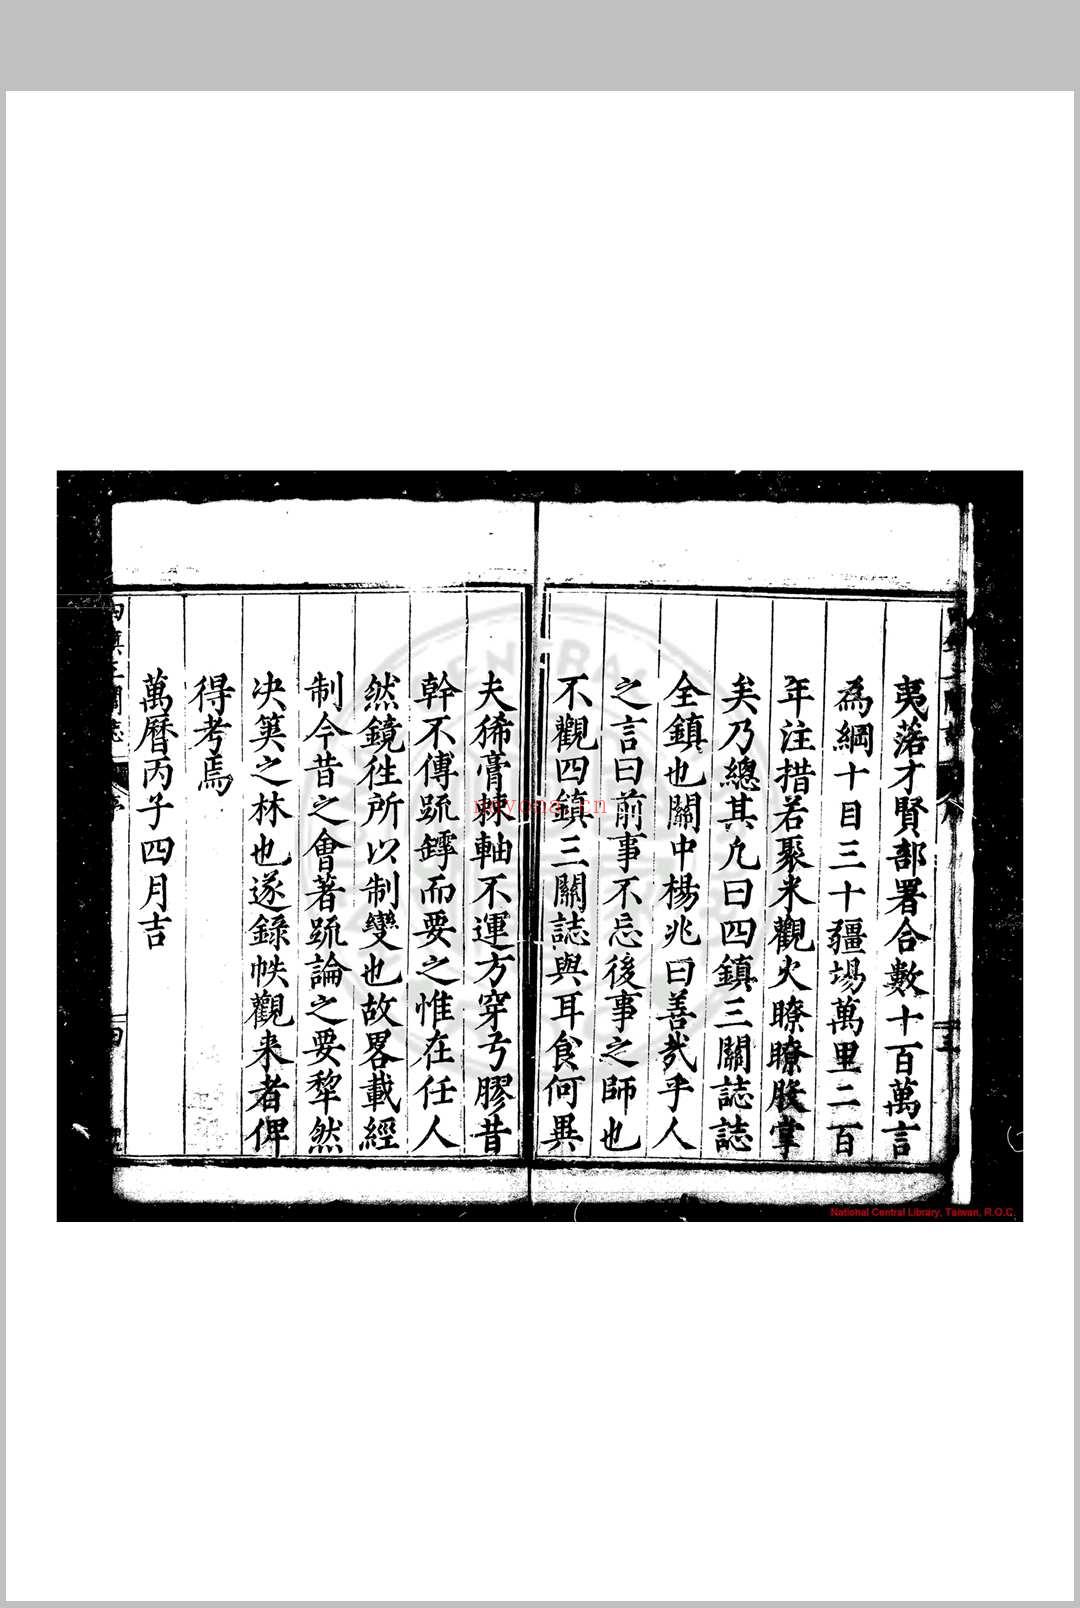 夷落才賢部署合數十百萬言
為綱十目三十疆場萬里二百
年注措若聚米觀火瞭瞭股掌
矣乃總其凢曰四鎮三關誌誌
全鎮也關中楊兆曰善哉乎人
之言曰前事不忘後事之師也
不觀四鎮三關誌與耳食何異
夫狶膏棘軸不運方穿弓膠昔
幹不傅䟽罅而要之惟在任人
然鏡徃所以制變也故畧載經
制今昔之會著䟽論之要犂然
决筴之林也遂錄帙觀来者俾
得考焉
萬曆丙子四月吉
四鎮三關誌
序
四
novona.cn
National Central Library, Taiwan, R.O.C.